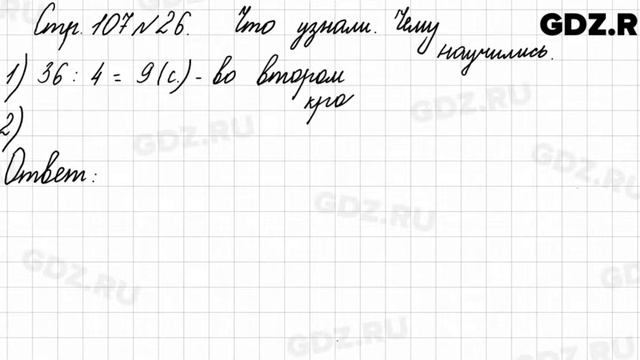 Стр. 107 № 26. Что узнали. Чему научились.
GDZ.R
1) 36 : 4 = 9 (с.) - во втором кра
2)
Ответ:
GDZ.RU
GDZ.RU
GDZ.RU
GDZ.RU
GDZ.RU
GDZ.RU